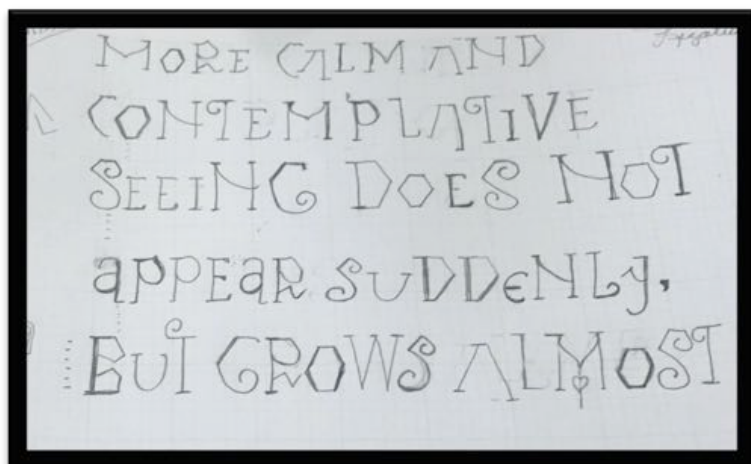 MORE CALM AND
CONTEMPLATIVE
SEEING DOES NOT
appEaR SUDDENLy,
BUT GROWS ALMOST